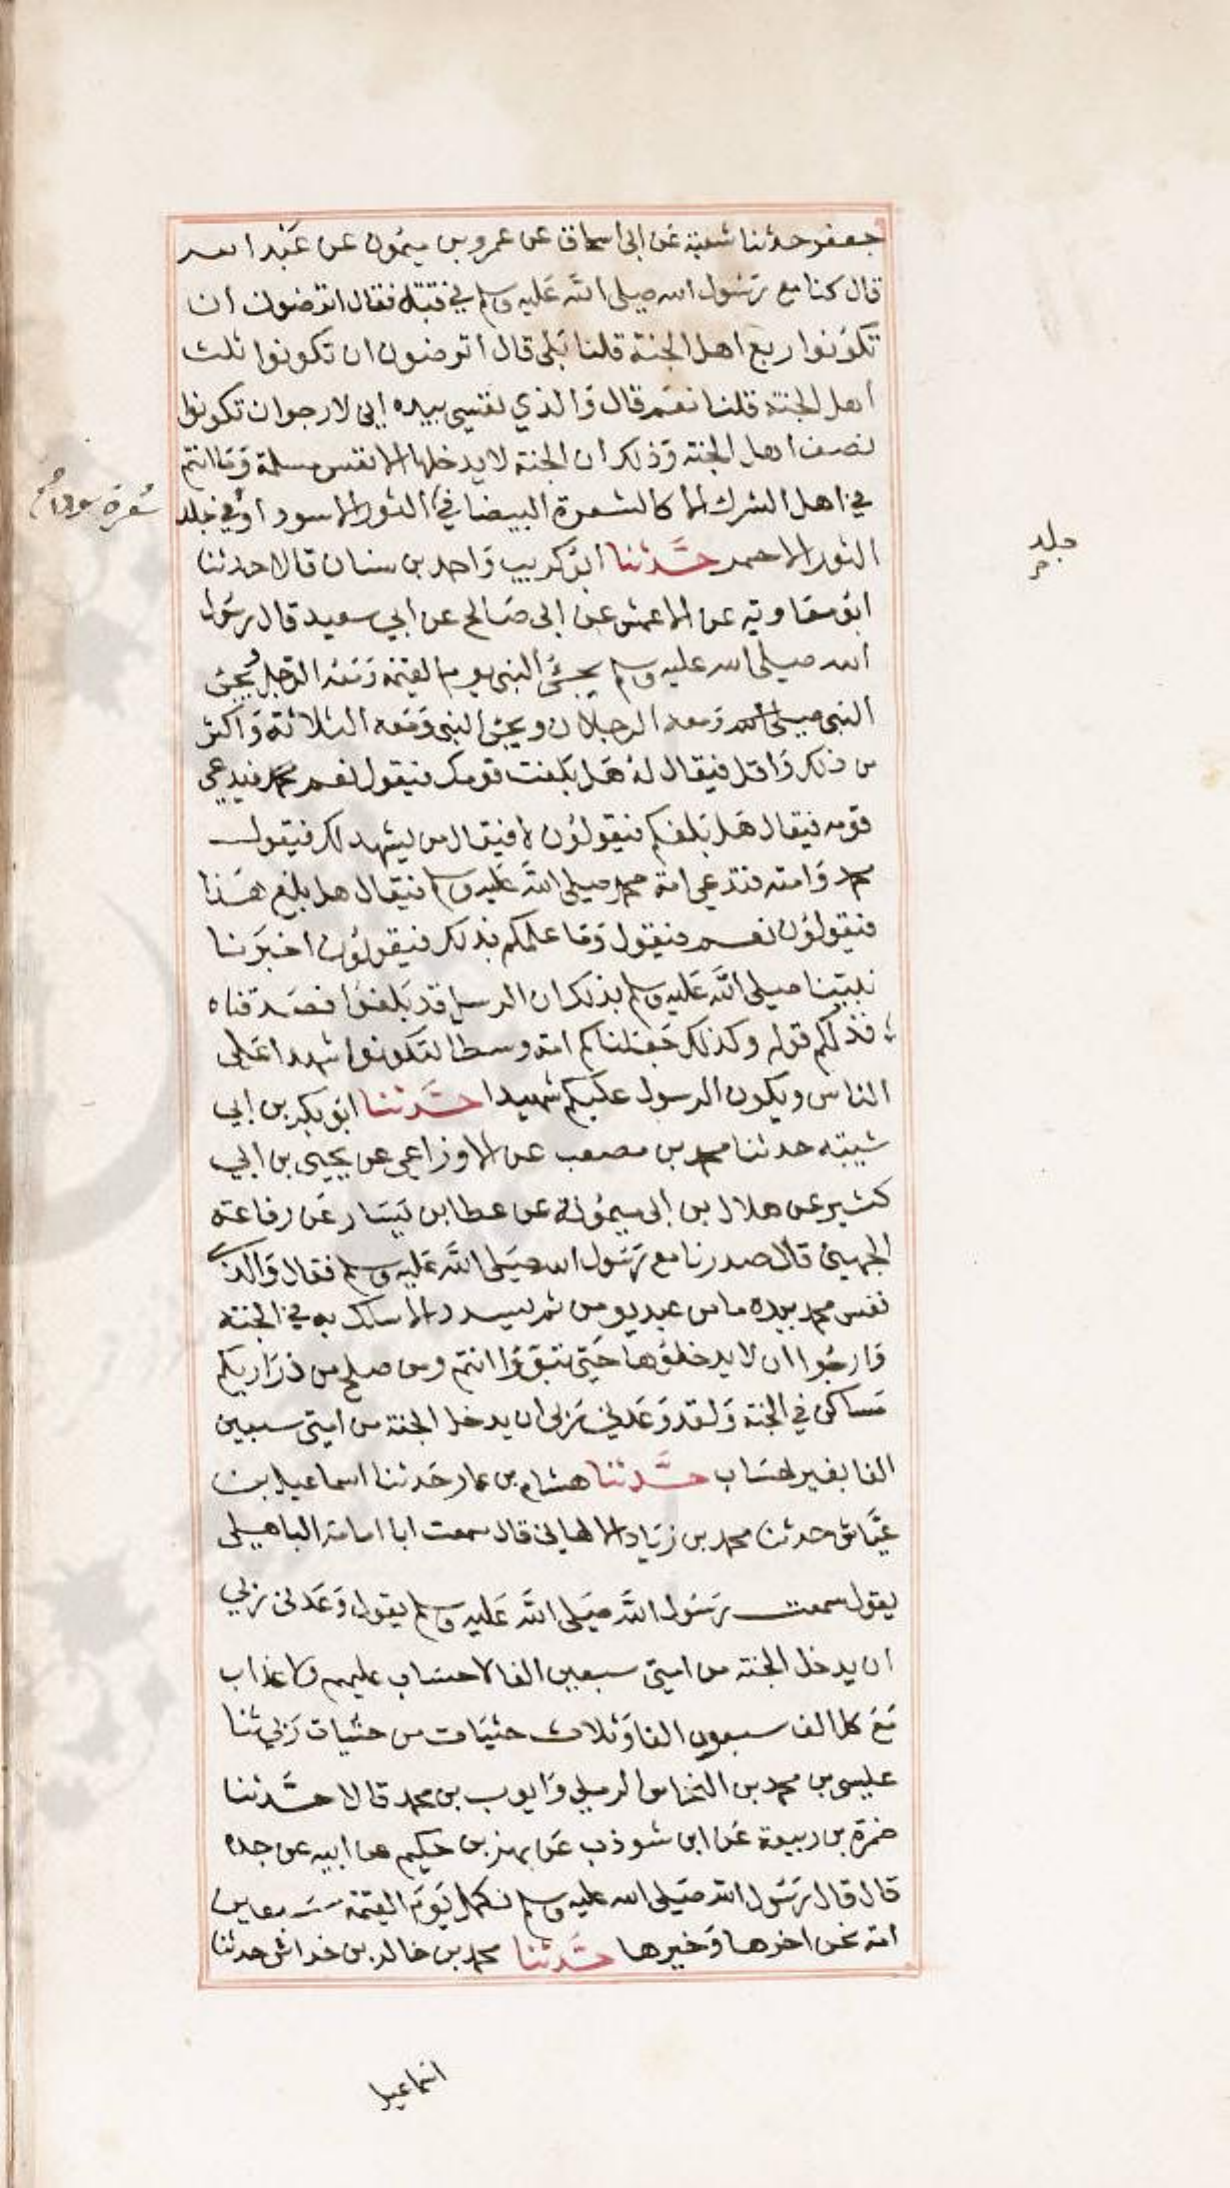 جعفر حدثنا شعبة عن ابى اسحاق عن عمرو بن ميمون عن عبد الله
قال كنا مع رسول الله صيلى الله عليه وسلم في قبتة فقال اترضون ان
تكونوا ربع اهل الجنة قلنا بلى قال اترضون ان تكونوا ثلث
اهل الجنة قلنا نعم قال والذي نفسي بيده إني لارجوان تكونوا
نصف اهل الجنة وذلك ان الجنة لا يدخلها الا نفس مسلمة وما انتم
في اهل الشرك الا كالشعرة البيضا في الثور الاسود او في جلد
الثور الاحمر حدثنا ابو كريب واحمد بن سنان قالا حدثنا
ابو معاوية عن الاعمش عن ابى صالح عن ابي سعيد قال رسول
الله صيلى الله عليه وسلم يجئ النبى يوم القيمة ومعه الرجل ويجئ
النبى ومعه الرجلان ويجئ النبى ومعه الثلاثة واكثر
من ذلك واقل فيقال له هل بلغت قومك فيقول نعم فيدعى
قومه فيقال هل بلغكم فيقولون لا فيقال من ليشهد لك فيقول
محمد وامته فتدعى امة محمد صيلى الله عليه وسلم فيقال هل بلغ هذا
فيقولون نعم فيقول وما علمكم بذلك فيقولون اخبرنا
نبينا صيلى الله عليه وسلم بذلك ان الرسل قد بلغوا فصدقناه
فذلكم قوله وكذلك جعلناكم امة وسطا لتكونوا شهدا على
الناس ويكون الرسول عليكم شهيدا حدثنا ابو بكر بن ابي
شيبة حدثنا محمد بن مصعب عن الاوزاعي عن يحيى بن ابي
كثير عن هلال بن ابى ميمونة عن عطا بن يسار عن رفاعة
الجهنى قال صدرنا مع رسول الله صيلى الله عليه وسلم فقال والذي
نفس محمد بيده ما من عبد يومن ثم ليسدد الا سلك به في الجنة
وارجوا ان لا يدخلوها حتى تبووا انتم ومن صلح من ذراريكم
مساكن في الجنة ولقد وعدني ربى ان يدخل الجنة من امتي سبعين
الفا بغير حساب حدثنا هشام بن عمار حدثنا اسماعيل بن
عياش حدثنا محمد بن زياد الالهانى قال سمعت ابا امامة الباهيلى
يقول سمعت رسول الله صيلى الله عليه وسلم يقول وعدنى ربي
ان يدخل الجنة من امتي سبعين الفا لا حساب عليهم ولا عذاب
مع كل الف سبعون الفا وثلاث حثيات من حثيات ربي ثنا
عليسى بن محمد بن النحاس الرميلي وايوب بن محمد قالا حدثنا
ضمرة بن ربيعة عن ابن شوذب عن بهز بن حكيم عن ابيه عن جده
قال قال رسول الله صيلى الله عليه وسلم نكمل يوم القيمة سبعين
امة نحن اخرها وخيرها حدثنا محمد بن خالد بن خداش حدثنا
جلد
اسماعيل